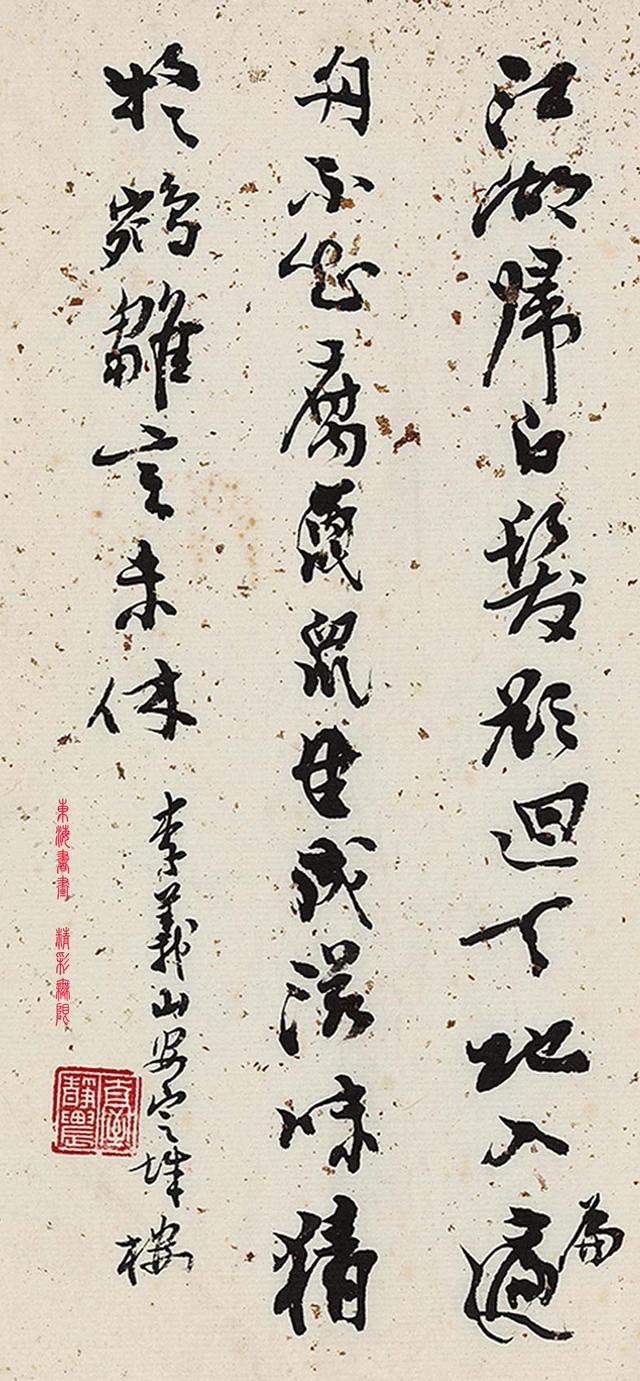 江湖歸白髮欲迴天地入
扁
舟不知腐鼠成滋味猜
鵷雛未休
李義山安定城樓
東海書畫 精彩無限
靜農